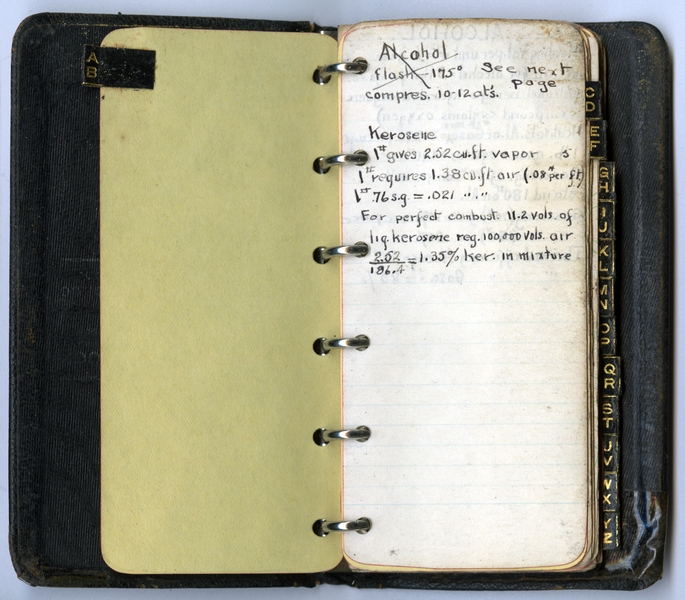 A
B
Alcohol
flash 175° See next
page
compres. 10-12 at's.
Kerosene
1# gives 2.52 cu.ft vapor 5
1# requires 1.38 cu.ft air (.08# per ft)
1# .76 s.g = .021 " " "
For perfect combust. 11.2 vols. of
liq. kerosene req. 100,000 vols. air
2.52
186.4 = 1.35% ker. in mixture
C
D
E
F
G
H
I
J
K
L
M
N
O
P
Q
R
S
T
U
V
W
X
Y
Z